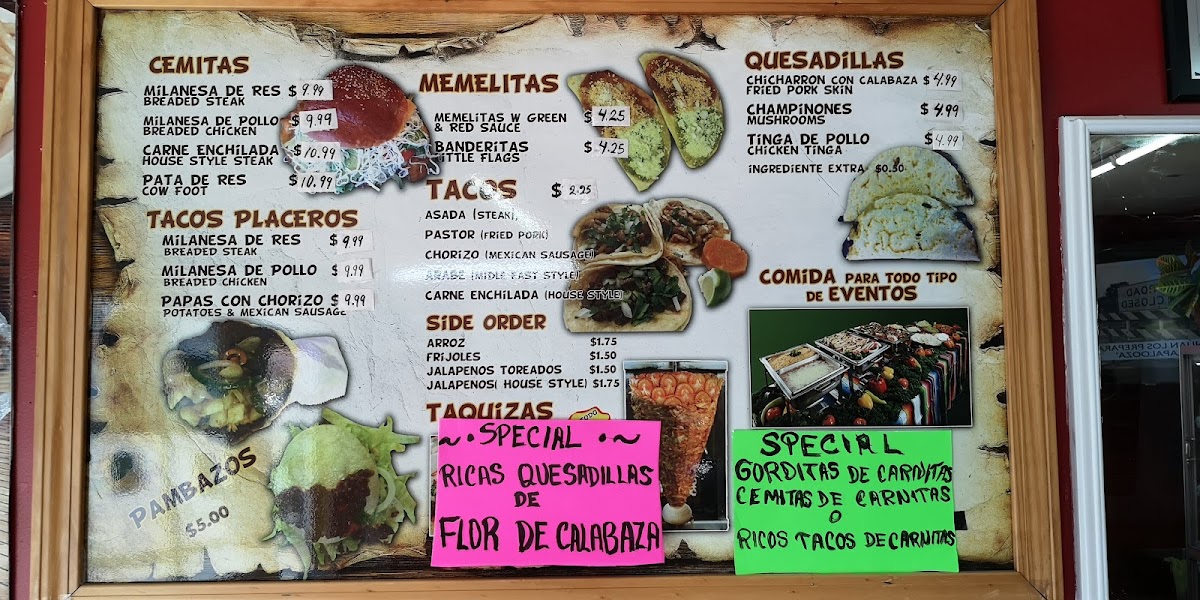 CEMITAS
MILANESA DE RES $ 9.99
BREADED STEAK
MILANESA DE POLLO $ 9.99
BREADED CHICKEN
CARNE ENCHILADA $ 10.99
HOUSE STYLE STEAK
PATA DE RES $ 10.99
COW FOOT
TACOS PLACEROS
MILANESA DE RES $ 9.99
BREADED STEAK
MILANESA DE POLLO $ 9.99
BREADED CHICKEN
PAPAS CON CHORIZO $ 9.99
POTATOES & MEXICAN SAUSAGE
PAMBAZOS
$5.00
MEMELITAS
MEMELITAS W GREEN $ 4.25
& RED SAUCE
BANDERITAS $ 4.25
LITTLE FLAGS
TACOS $ 2.25
ASADA (STEAK),
PASTOR (FRIED PORK)
CHORIZO (MEXICAN SAUSAGE)
ARABE (MIDLE EAST STYLE)
CARNE ENCHILADA (HOUSE STYLE)
SIDE ORDER
ARROZ $1.75
FRIJOLES $1.50
JALAPENOS TOREADOS $1.50
JALAPENOS( HOUSE STYLE) $1.75
TAQUIZAS
TODO
~.SPECIAL.~
RICAS QUESADILLAS
DE
FLOR DE CALABAZA
QUESADILLAS
CHICHARRON CON CALABAZA $ 4.99
FRIED PORK SKIN
CHAMPINONES $ 4.99
MUSHROOMS
TINGA DE POLLO $ 4.99
CHICKEN TINGA
INGREDIENTE EXTRA $0.50
COMIDA PARA TODO TIPO
DE EVENTOS
SPECIAL
GORDITAS DE CARNITAS
CEMITAS DE CARNITAS
O
RICOS TACOS DE CARNITAS
ROAD
CLOSED